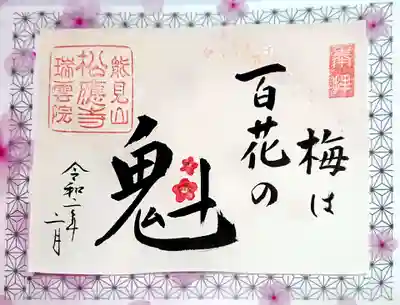 奉拝
梅は
百花の
魁
令和二年
二月
熊見山
松應寺
瑞雲院